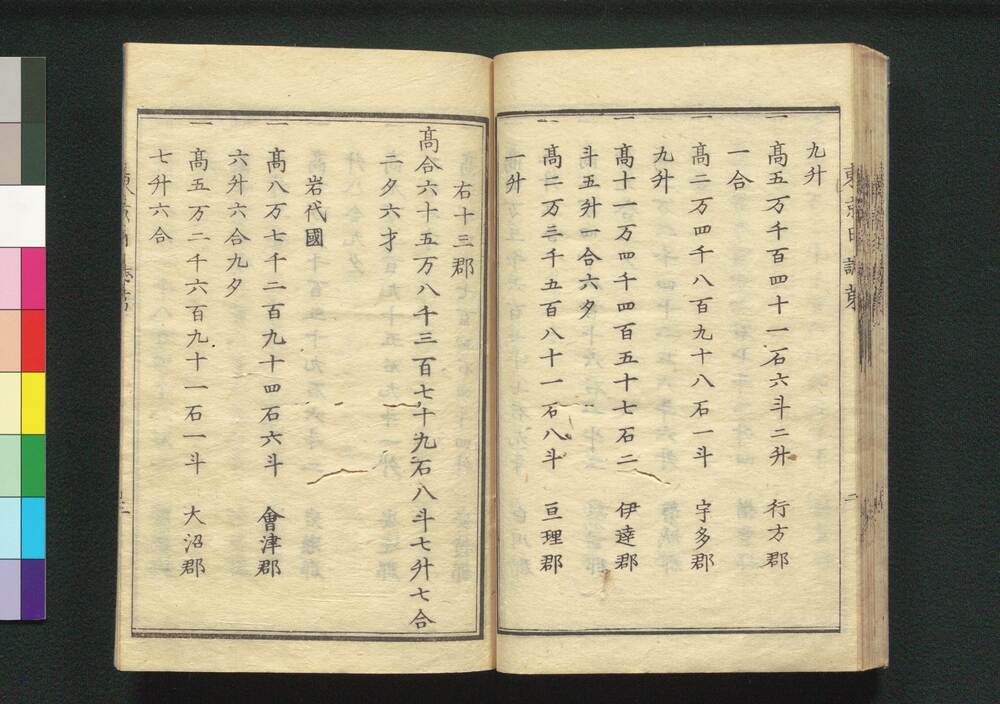 九升
一 髙五万千百四十一石六斗二升 行方郡
一合
一 髙二万四千八百九十八石一斗 宇多郡
九升
一 髙十一万四千四百五十七石二 伊達郡
斗五升四合六夕
一 髙二万三千五百八十一石八斗 亘理郡
一升
右十三郡
髙合六十五万八千三百七十九石八斗七升七合
二夕六才
岩代國
一 髙八万七千二百九十四石六斗 會津郡
六升六合九夕
一 髙五万二千六百九十一石一斗 大沼郡
七升六合